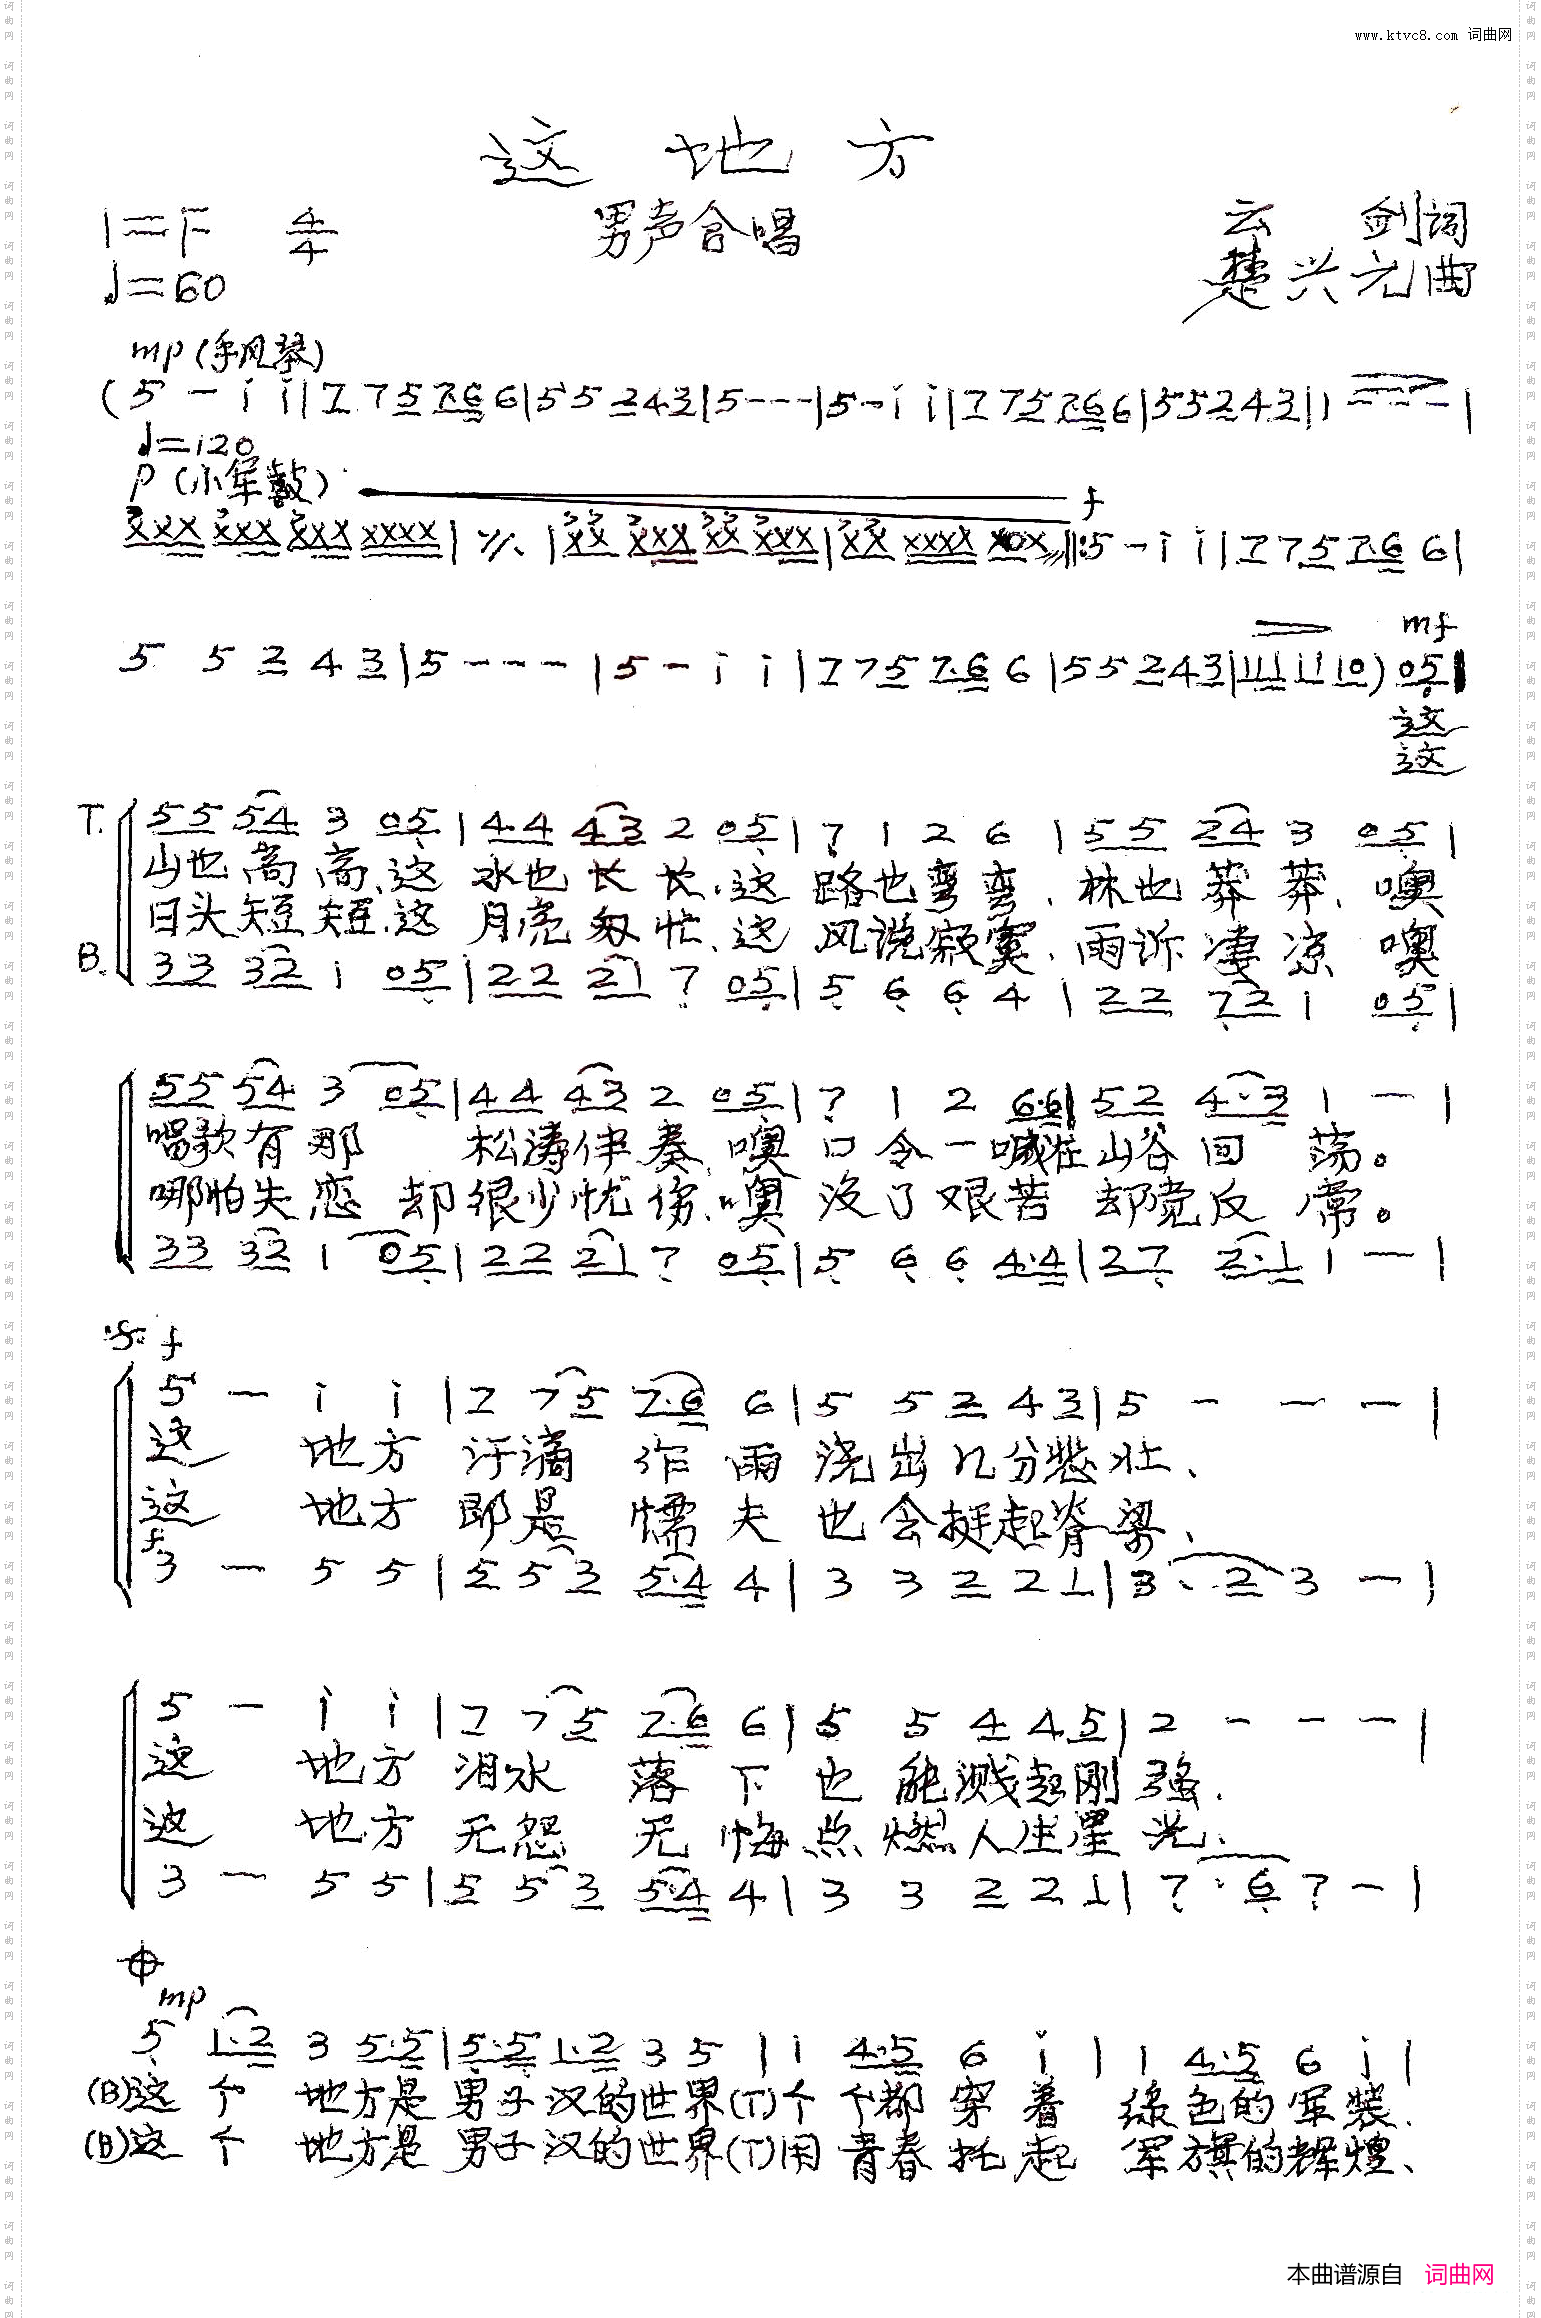 www.ktvc8.com 词曲网
这地方
1=F 4/4 男声合唱 云剑词
♩=60 楚兴元曲
mp(手风琴)
(5 - i i|7 7 5 7·6 6|5 5 2 4 3|5 - - -|5 - i i|7 7 5 7·6 6|5 5 2 4 3|1 - - -|
♩=120
p(小军鼓) f
XXX XXX XXX XXXX|⁒|XX XXX XX XXX|XX XXXX X0X‖:5 - i i|7 7 5 7·6 6|
mf
5 5 2 4 3|5 - - -|5 - i i|7 7 5 7·6 6|5 5 2 4 3|11 1 1 1 10) 05|
这
这
T. 55 54 3 05|44 43 2 05|7 1 2 6|55 24 3 05|
山也高高、这水也长长、这路也弯弯、林也莽莽、噢
日头短短、这月亮匆忙、这风说寂寞、雨诉凄凉噢
B. 33 32 1 05|22 21 7 05|5 6 6 4|22 72 1 05|
55 54 3 05|44 43 2 05|7 1 2 6·6|52 4·3 1 -|
唱歌有那松涛伴奏、噢口令一喊在山谷回荡。
哪怕失恋却很少忧伤、噢没了艰苦却觉反常。
33 32 1 05|22 21 7 05|5 6 6 4·4|27 2·1 1 -|
f
5 - i i|7 7 5 7·6 6|5 5 2 4 3|5 - - -|
这地方汗滴作雨浇出几分悲壮、
这地方即是懦夫也会挺起脊梁、
f
3 - 5 5|5 5 3 5·4 4|3 3 2 2 1|3 · 2 3 -|
5 - i i|7 7 5 7·6 6|5 5 4 4 5|2 - - -|
这地方泪水落下也能溅起刚强、
这地方无怨无悔点燃人生星光、
3 - 5 5|5 5 3 5·4 4|3 3 2 2 1|7 · 6 7 -|
mp
5 1·2 3 5·5|5·5 1·2 3 5|1 4·5 6 i|1 4·5 6 i|
(B)这个地方是男子汉的世界(T)个个都穿着绿色的军装、
(B)这个地方是男子汉的世界(T)用青春托起军旗的辉煌、
本曲谱源自 词曲网